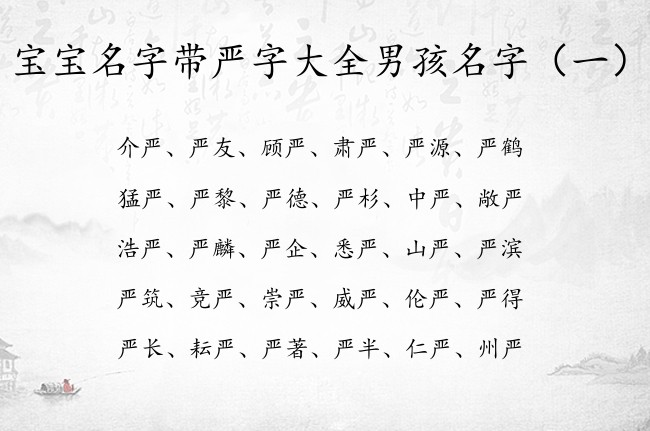 宝宝名字带严字大全男孩名字（一）
介严、严友、顾严、肃严、严源、严鹤
猛严、严黎、严德、严杉、中严、敞严
浩严、严麟、严企、悉严、山严、严滨
严筑、竞严、崇严、威严、伦严、严得
严长、耘严、严著、严半、仁严、州严